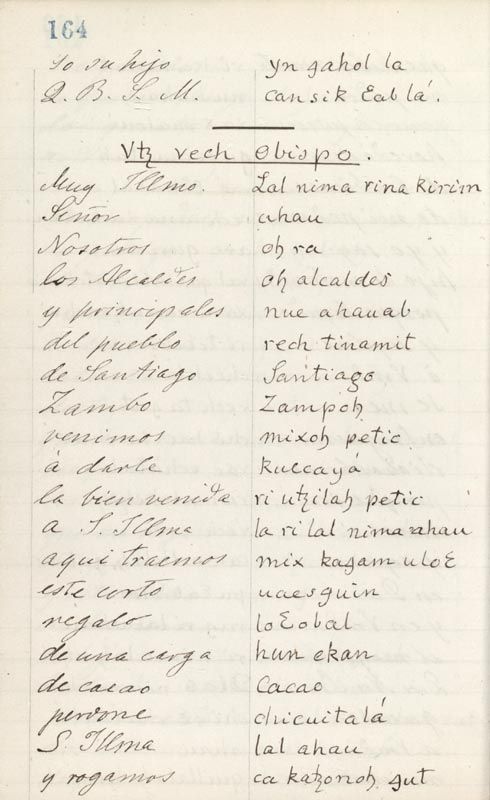 164
Yo su hijo yn gahol la
Q. B. S. M. cansik Ɛab lá.
Vtꜩ vech Obispo.
Muy Illmo. Lal nima rina kirim
Señor ahau
Nosotros oh ra
los Alcaldes oh alcaldes
y principales nue ahauab
del pueblo rech tinamit
de Santiago Santiago
Zambo Zampoh
venimos mixoh petic
á darle kuccayá
la bien venida ri utꜩilah petic
a S. Illma la ri lal nima ahau
aqui traemos mix kagam uloƐ
este corto uaesguin
regalo loƐobal
de una carga hun ekan
de cacao Cacao
perdone chicuitalá
S. Illma lal ahau
y rogamos ca katꜩonoh gut